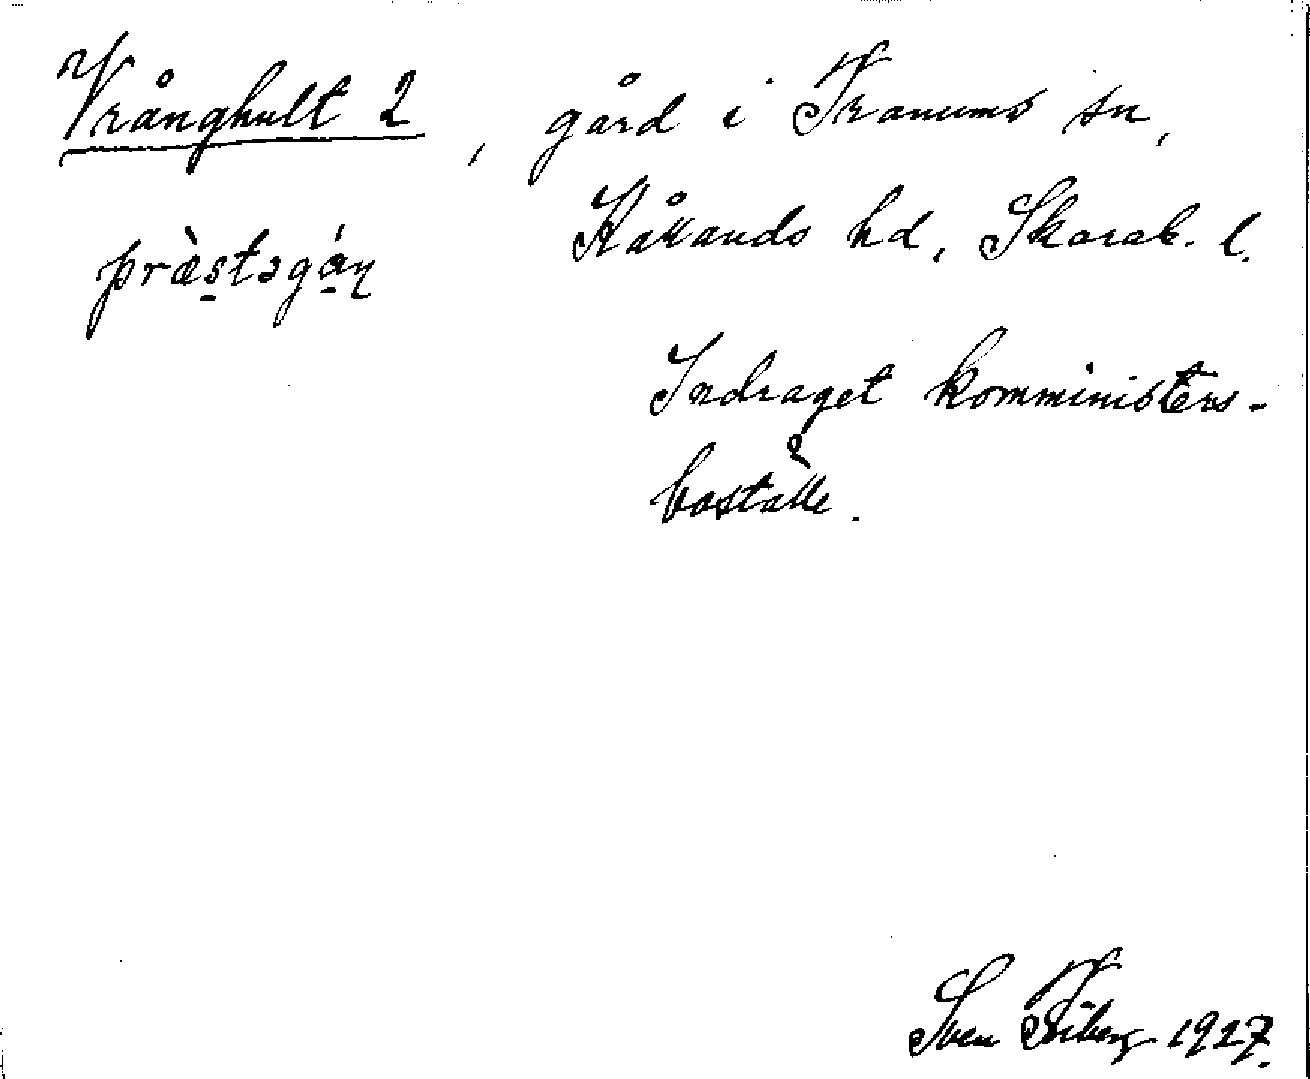 Vrånghult 2, gård i Tranums sn,
Håkands hd, Skarab. l.
præ̀stəgán
Indraget komministers-
boställe.
Sven 1927.